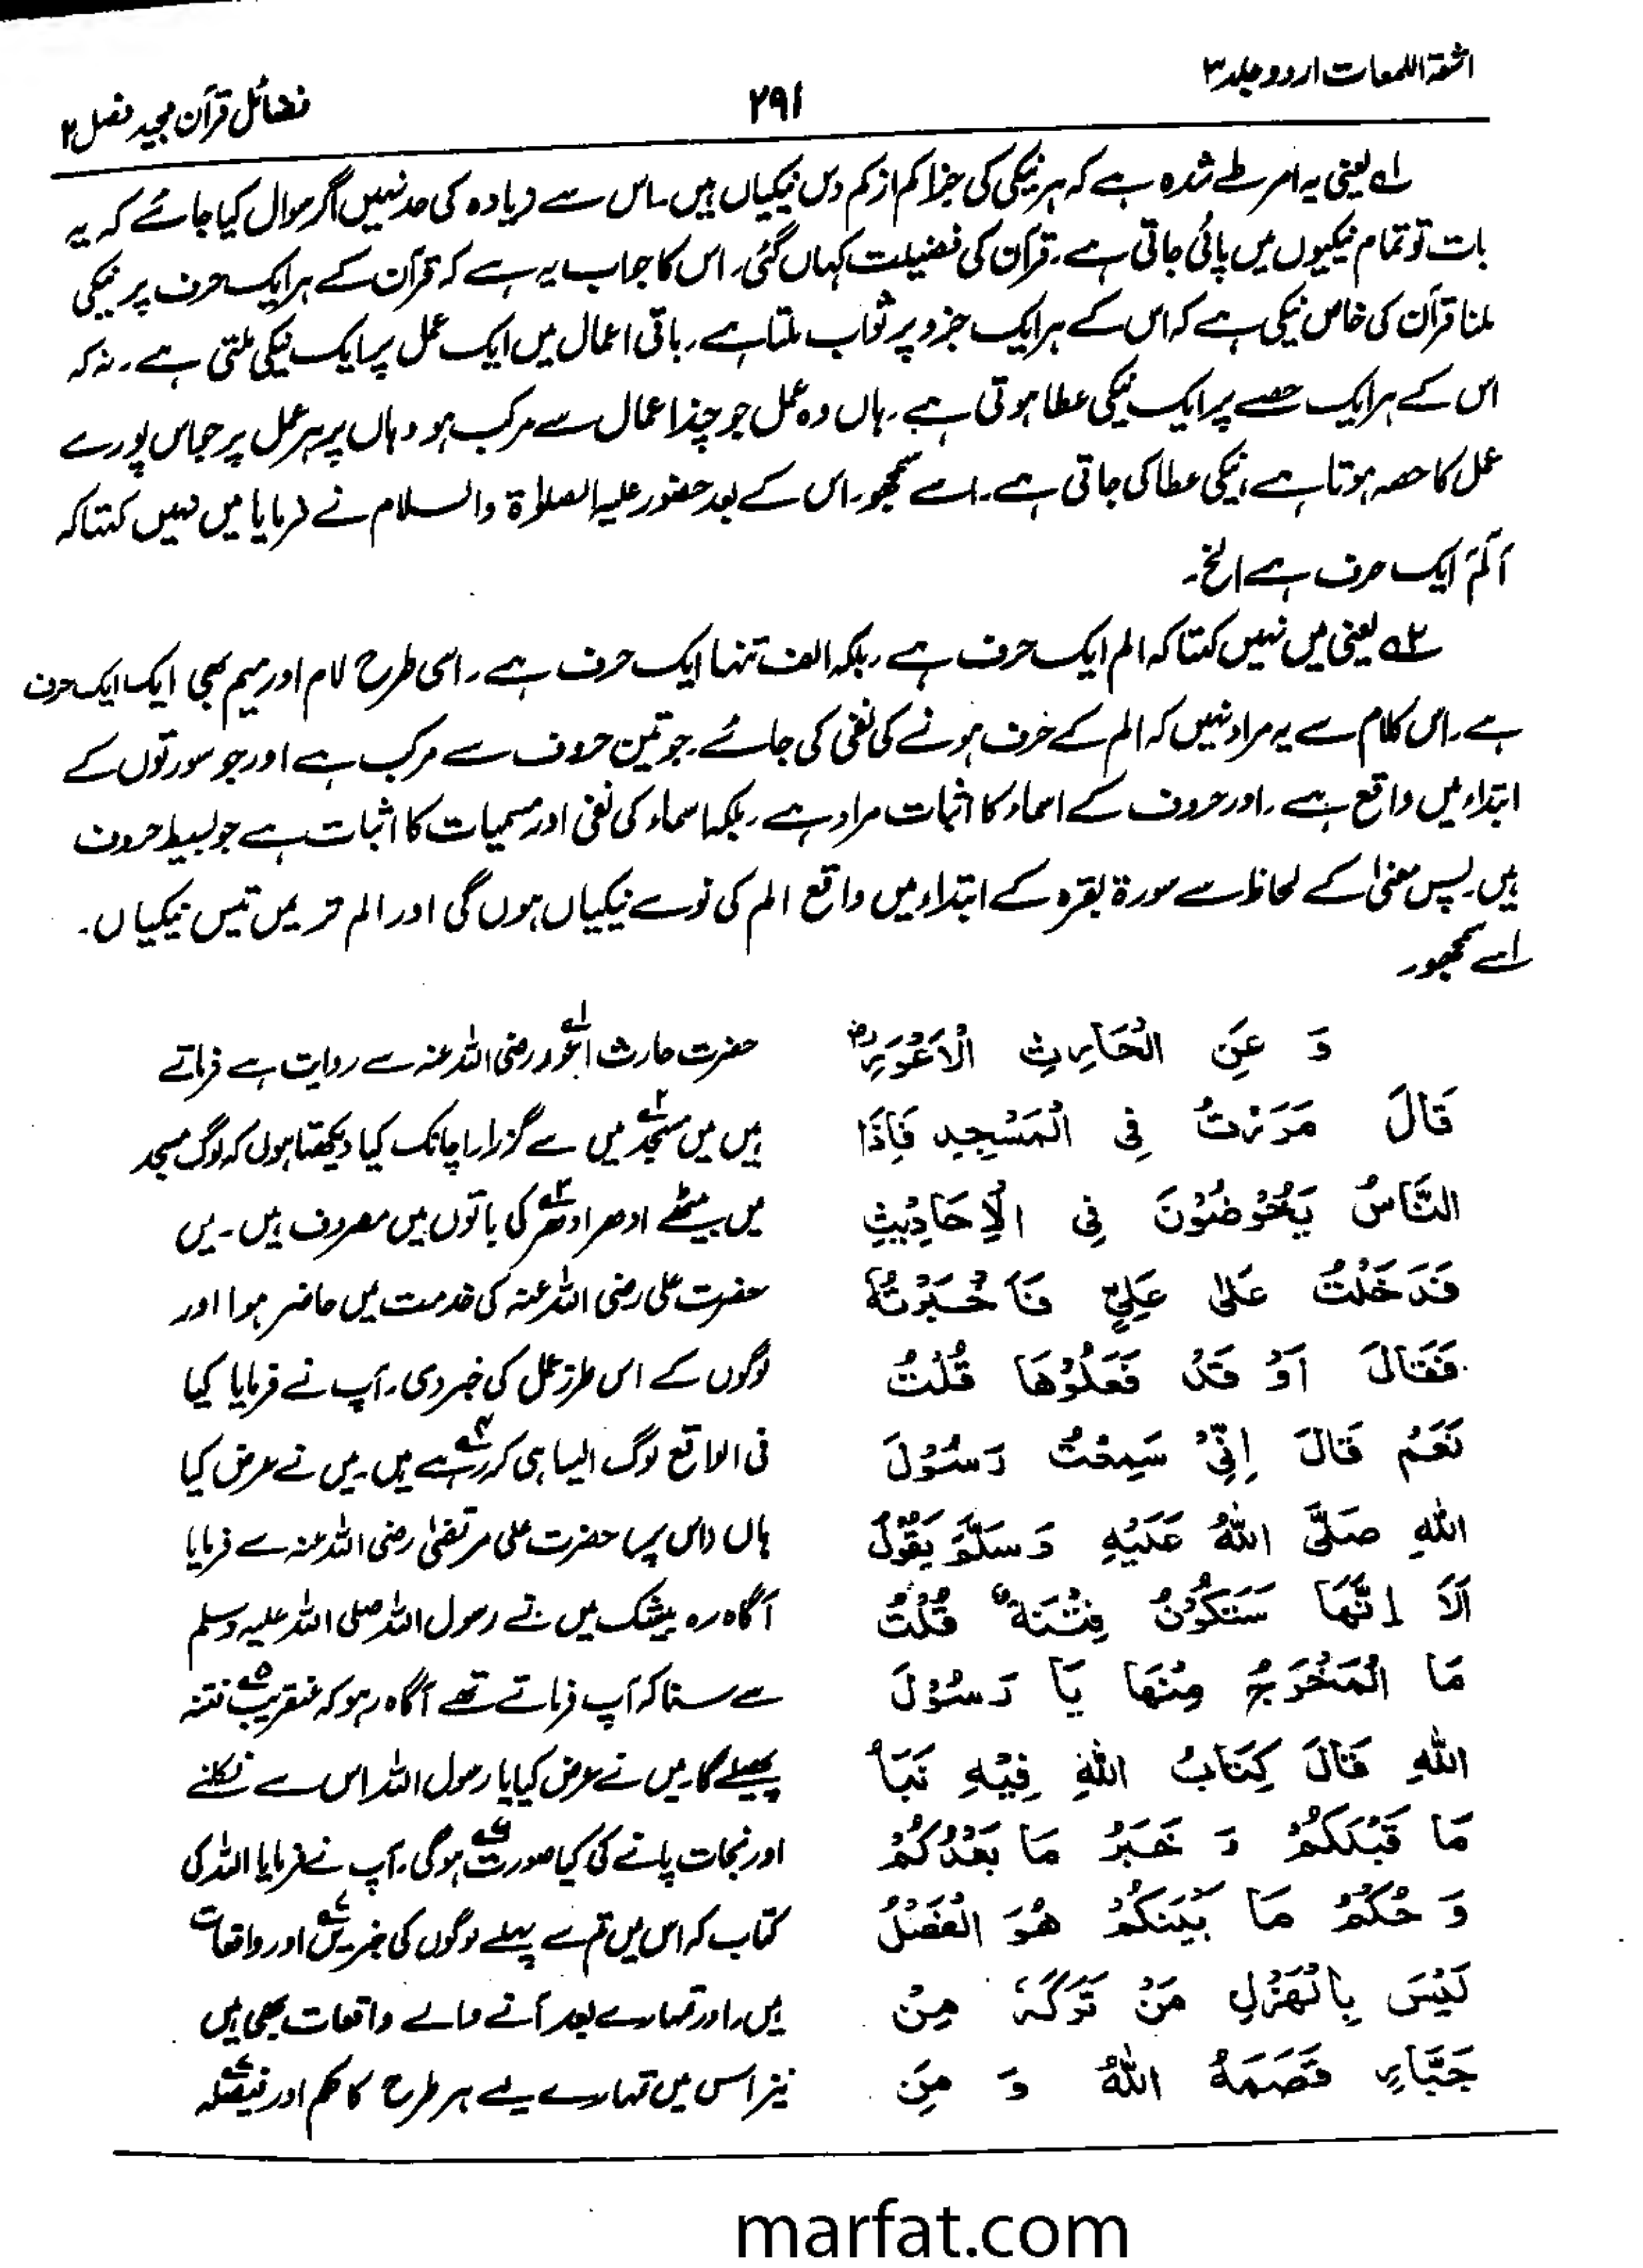 اشعۃ اللمعات اردو جلد ۳
۲۹۱
فضائل قرآن مجید فصل ۲
۱؎ یعنی یہ امر طے شدہ ہے کہ ہر نیکی کی جزا کم از کم دس نیکیاں ہیں۔ اس سے زیادہ کی حد نہیں اگر سوال کیا جائے کہ یہ
بات تو تمام نیکیوں میں پائی جاتی ہے۔ قرآن کی فضیلت کہاں گئی۔ اس کا جواب یہ ہے کہ قرآن کے ہر ایک حرف پر نیکی
ملنا قرآن کی خاص نیکی ہے کہ اس کے ہر ایک جزو پر ثواب ملتا ہے۔ باقی اعمال میں ایک عمل پر ایک نیکی ملتی ہے۔ نہ کہ
اس کے ہر ایک حصے پر ایک نیکی عطا ہوتی ہے۔ ہاں وہ عمل جو چند اعمال سے مرکب ہو وہاں پر ہر عمل پر جو اس پورے
عمل کا حصہ ہوتا ہے، نیکی عطا کی جاتی ہے۔ اسے سمجھو۔ اس کے بعد حضور علیہ الصلوٰۃ والسلام نے فرمایا میں نہیں کہتا کہ
آلٓمّٓ ایک حرف ہے الخ۔
۲؎ یعنی میں نہیں کہتا کہ الم ایک حرف ہے۔ بلکہ الف تنہا ایک حرف ہے۔ اسی طرح لام اور میم بھی ایک ایک حرف
ہے۔ اس کلام سے یہ مراد نہیں کہ الم کے حرف ہونے کی نفی کی جائے۔ جو تین حروف سے مرکب ہے اور جو سورتوں کے
ابتداء میں واقع ہے۔ اور حروف کے اسماء کا اثبات مراد ہے۔ بلکہ اسماء کی نفی اور مسمیات کا اثبات ہے جو بسیط حروف
ہیں۔ پس معنیٰ کے لحاظ سے سورۃ بقرہ کے ابتداء میں واقع الم کی نوے نیکیاں ہوں گی اور الم تر میں تیس نیکیاں۔
اسے سمجھو۔
وَ عَنِ الْحَارِثِ الْاَعْوَرِ رض
قَالَ مَرَرْتُ فِی الْمَسْجِدِ فَاِذَا
النَّاسُ یَخُوْضُوْنَ فِی الْاَحَادِیْثِ
فَدَخَلْتُ عَلٰی عَلِیٍّ فَاَخْبَرْتُهٗ
فَقَالَ اَوَ قَدْ فَعَلُوْهَا قُلْتُ
نَعَمْ قَالَ اِنِّیْ سَمِعْتُ رَسُوْلَ
اللّٰهِ صَلَّی اللّٰهُ عَلَیْهِ وَسَلَّمَ یَقُوْلُ
اَلَا اِنَّهَا سَتَكُوْنُ فِتْنَةٌ قُلْتُ
مَا الْمَخْرَجُ مِنْهَا یَا رَسُوْلَ
اللّٰهِ قَالَ كِتَابُ اللّٰهِ فِیْهِ نَبَأُ
مَا قَبْلَكُمْ وَ خَبَرُ مَا بَعْدَكُمْ
وَ حُكْمُ مَا بَیْنَكُمْ هُوَ الْفَصْلُ
لَیْسَ بِالْهَزْلِ مَنْ تَرَكَهٗ مِنْ
جَبَّارٍ قَصَمَهُ اللّٰهُ وَ مَنِ
حضرت حارث اعور۱؎ رضی اللہ عنہ سے روایت ہے فرماتے
ہیں میں مسجد۲؎ میں سے گزرا اچانک کیا دیکھتا ہوں کہ لوگ مسجد
میں بیٹھے ادھر ادھر۳؎ کی باتوں میں مصروف ہیں۔ میں
حضرت علی رضی اللہ عنہ کی خدمت میں حاضر ہوا اور
لوگوں کے اس طرز عمل کی خبر دی۔ آپ نے فرمایا کیا
فی الواقع لوگ ایسا ہی کر رہے۴؎ ہیں۔ میں نے عرض کیا
ہاں (اس پر) حضرت علی مرتضیٰ رضی اللہ عنہ نے فرمایا
آگاہ رہ بیشک میں نے رسول اللہ صلی اللہ علیہ وسلم
سے سنا کہ آپ فرماتے تھے آگاہ رہو کہ عنقریب۵؎ فتنہ
پھیلے گا۔ میں نے عرض کیا یا رسول اللہ اس سے نکلنے
اور نجات پانے کی کیا صورت۶؎ ہوگی۔ آپ نے فرمایا اللہ کی
کتاب کہ اس میں تم سے پہلے لوگوں کی خبریں۷؎ اور واقعات
ہیں۔ اور تمہارے بعد آنے والے واقعات بھی ہیں
نیز اس میں تمہارے لیے ہر طرح کا حکم اور فیصلہ
marfat.com